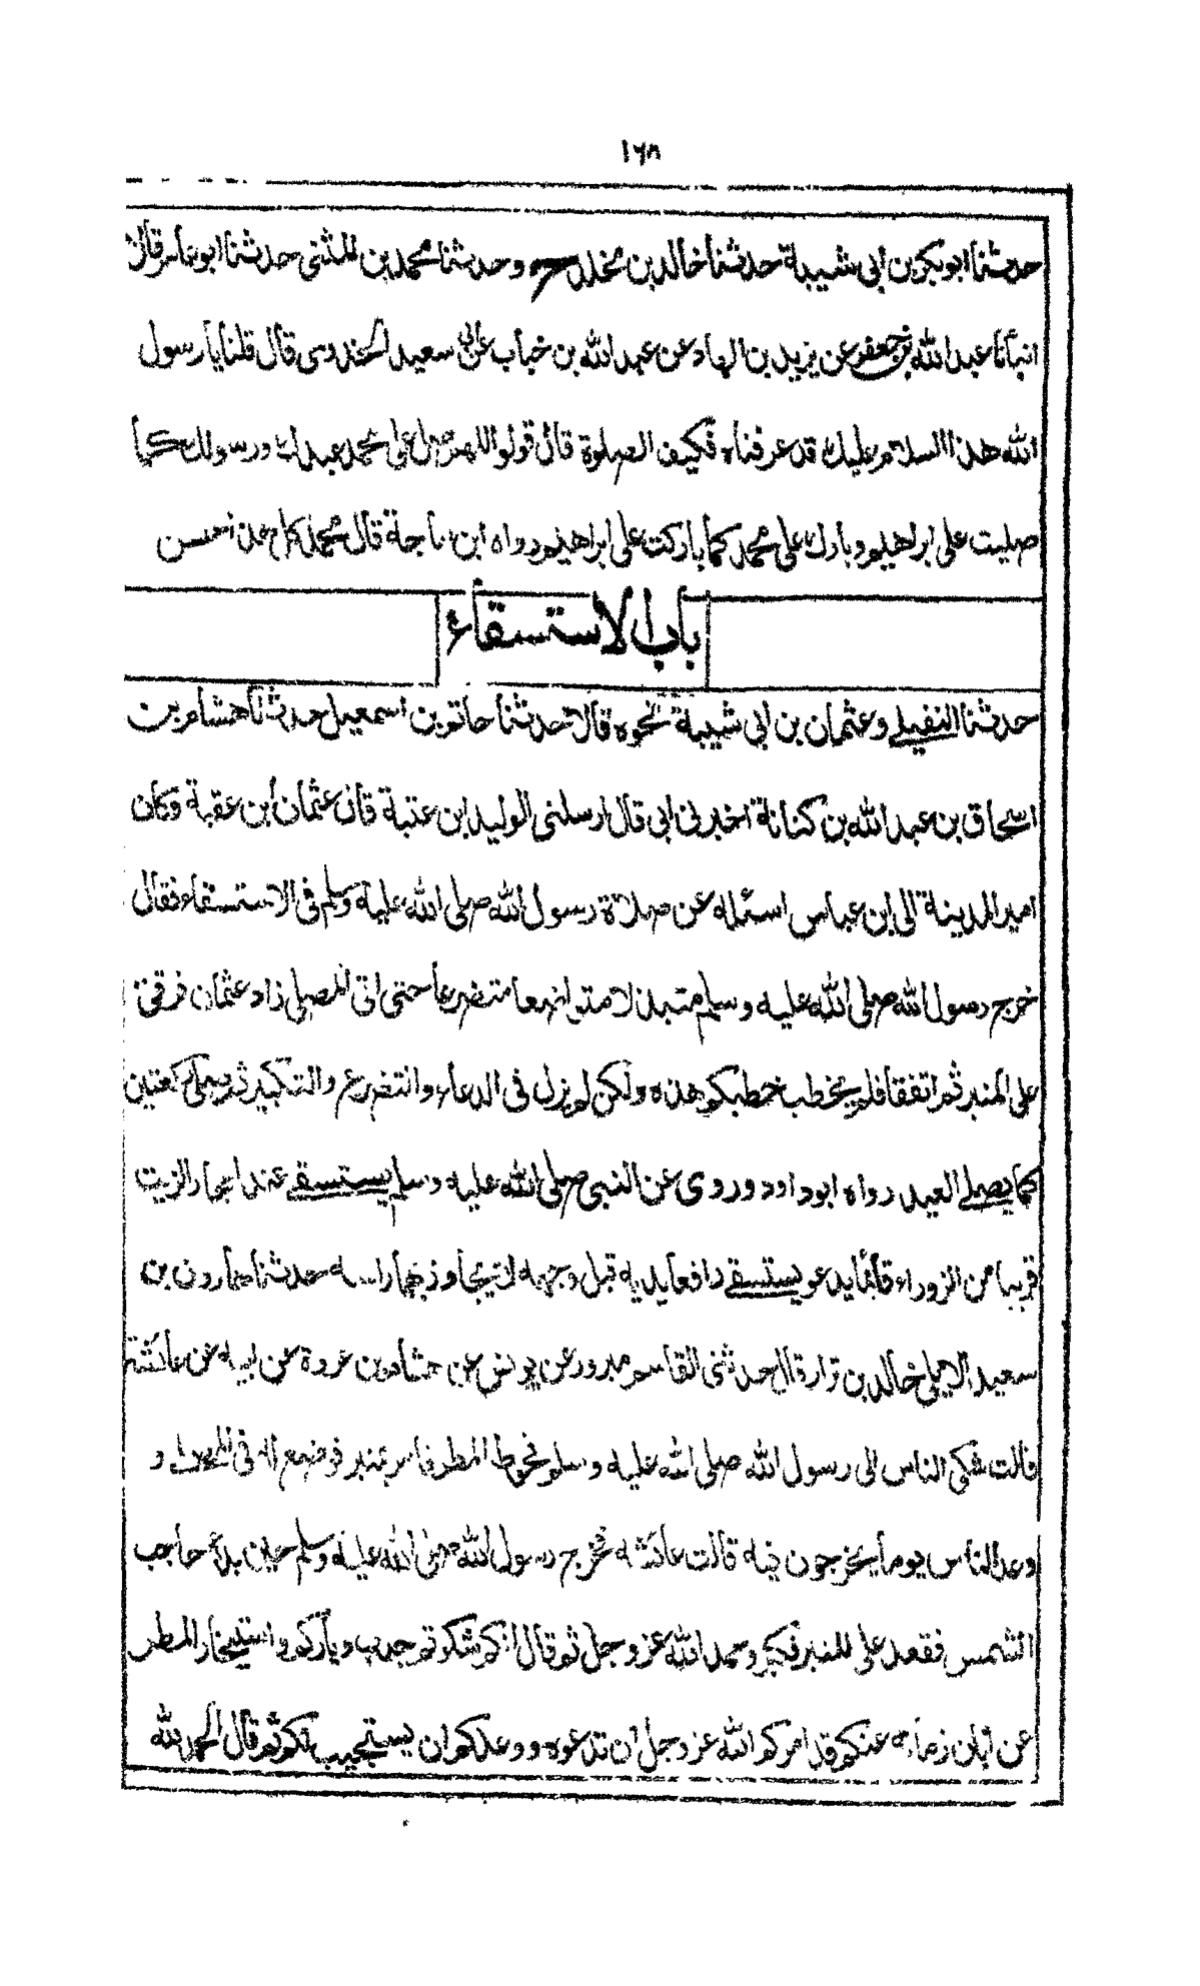 ١٦٨
حدثنا ابو بكر بن ابى شيبة حدثنا خالد بن مخلد ح وحدثنا محمد بن المثنى حدثنا ابو عامر قالا
انبأنا عبد الله بن جعفر عن يزيد بن الهاد عن عبد الله بن خباب عن ابى سعيد الخدرى قال قلنا يا رسول
الله هذا السلام عليك قد عرفناه فكيف الصلوة قال قولوا اللهم صل على محمد عبدك ورسولك كما
صليت على ابراهيم وبارك على محمد كما باركت على ابراهيم رواه ابن ماجة قال محمد كل حسن
باب الاستسقاء
حدثنا النفيلى وعثمان بن ابى شيبة نحوه قالا حدثنا حاتم بن اسمعيل حدثنا هشام بن
اسحاق بن عبد الله بن كنانة اخبرنى ابى قال ارسلنى الوليد ابن عتبة قال عثمان ابن عقبة وكان
امير المدينة الى ابن عباس اسئله عن صلاة رسول الله صلى الله عليه وسلم فى الاستسقاء فقال
خرج رسول الله صلى الله عليه وسلم متبذلا متواضعا متضرعا حتى اتى المصلى زاد عثمان فرقى
على المنبر ثم اتفقا فلم يخطب خطبكم هذه ولكن لم يزل فى الدعاء والتضرع والتكبير ثم صلى ركعتين
كما يصلى العيد رواه ابو داود وروى عن النبى صلى الله عليه وسلم يستسقى عند احجار الزيت
قريبا من الزوراء قائما يدعو يستسقى رافعا يديه قبل وجهه لا يجاوز بهما راسه حدثنا هارون بن
سعيد الايلى خالد بن نزار قال حدثنى القاسم مبرور عن يونس عن هشام بن عروة عن ابيه عن عائشة
قالت شكى الناس الى رسول الله صلى الله عليه وسلم قحوط المطر فامر بمنبر فوضع له فى المصلى و
وعد الناس يوما يخرجون فيه قالت عائشة فخرج رسول الله صلى الله عليه وسلم حين بدا حاجب
الشمس فقعد على المنبر فكبر وحمد الله عز وجل ثم قال انكم شكوتم جدب دياركم واستيخار المطر
عن ابان زمانه عنكم قد امركم الله عز وجل ان تدعوه ووعدكم ان يستجيب لكم ثم قال الحمد لله